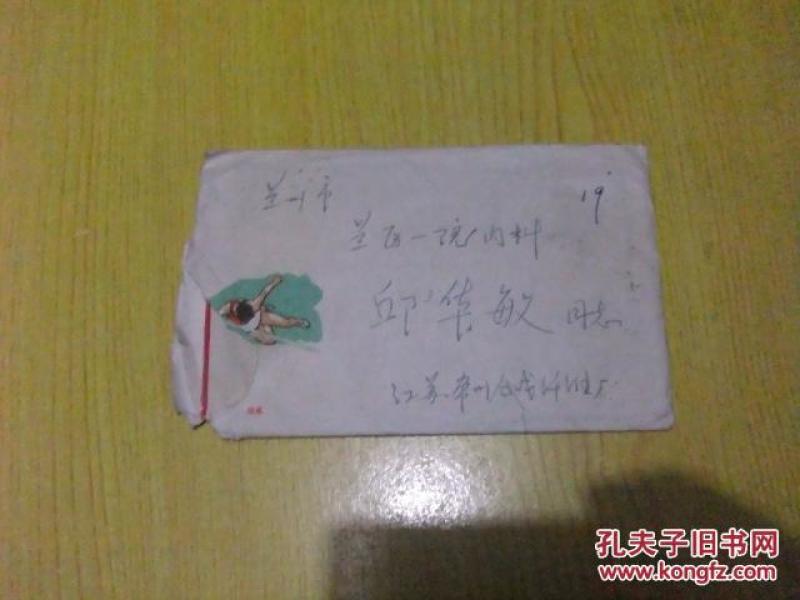 兰州市
19
兰医一院内科
邱华敏 同志
江苏常州合成纤维厂
孔夫子旧书网
www.kongfz.com